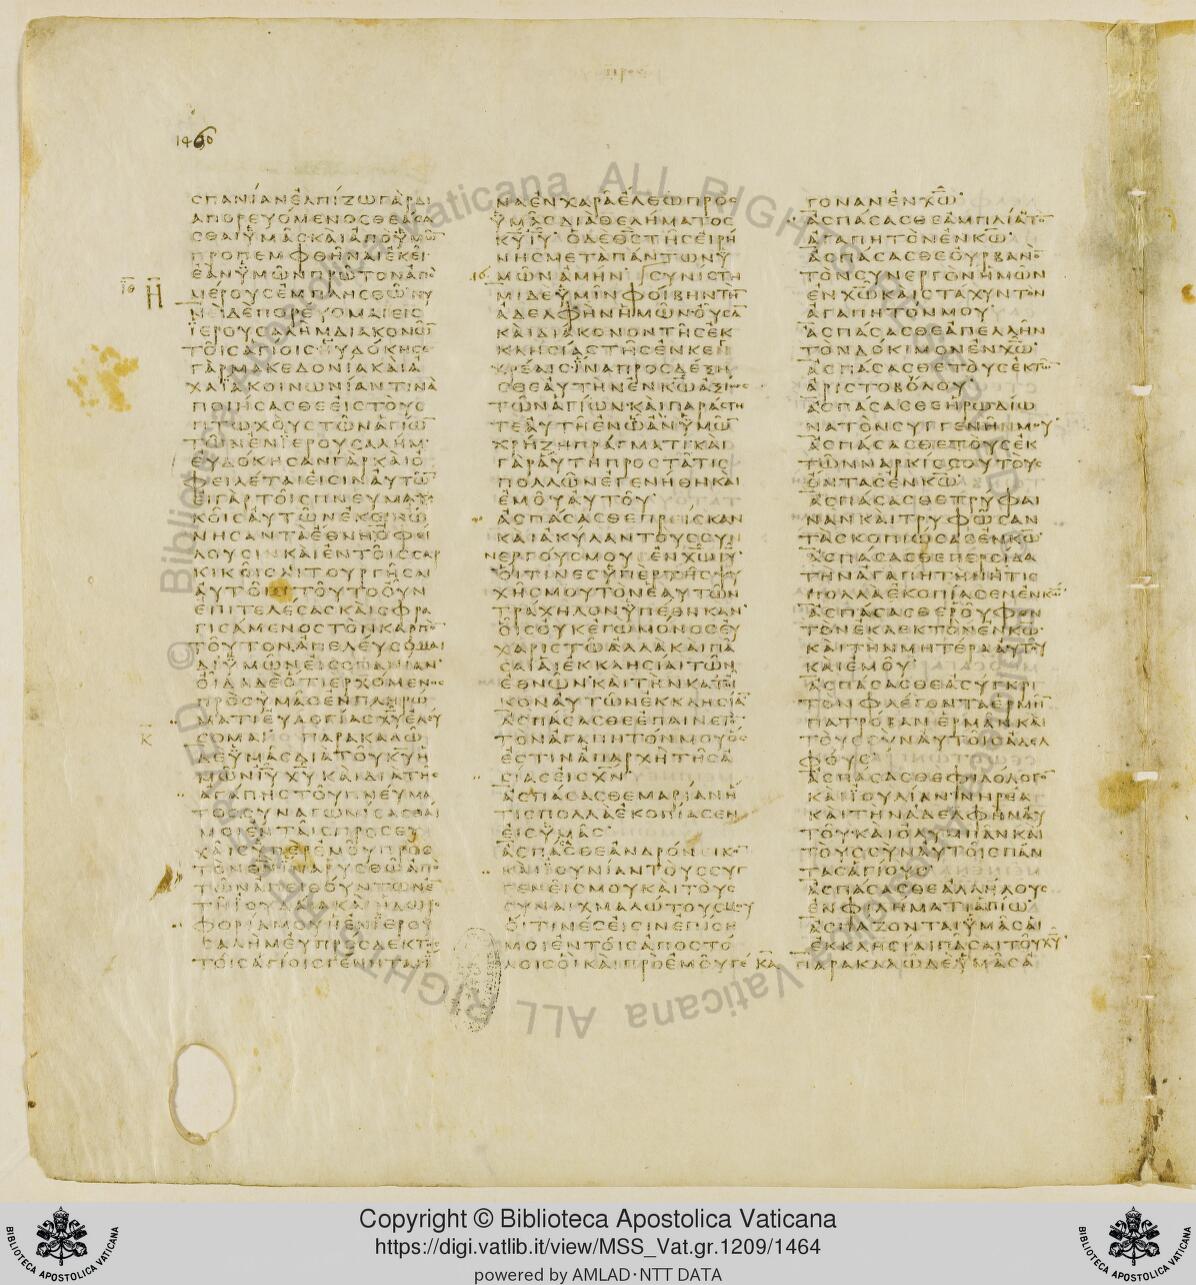 1460
ϹΠΑΝΙΑΝΕΛΠΙΖΩΓΑΡΔΙ
ΑΠΟΡΕΥΟΜΕΝΟϹΘΕΑϹΑ
ϹΘΑΙΫΜΑϹΚΑΙΑΠΟΫΜΩ̅
ΠΡΟΠΕΜΦΘΗΝΑΙΕΚΕΙ
ΕΑΝΫΜΩΝΠΡΩΤΟΝΑΠΟ
ΜΕΡΟΥϹΕΜΠΛΗϹΘΩ ΝΥ
ΝΙΔΕΠΟΡΕΥΟΜΑΙΕΙϹ
ΪΕΡΟΥϹΑΛΗΜΔΙΑΚΟΝΩ̅
ΤΟΙϹΑΓΙΟΙϹ ΗΥΔΟΚΗϹΕ
ΓΑΡΜΑΚΕΔΟΝΙΑΚΑΙΑ
ΧΑΪΑΚΟΙΝΩΝΙΑΝΤΙΝΑ
ΠΟΙΗϹΑϹΘΕΕΙϹΤΟΥϹ
ΠΤΩΧΟΥϹΤΩΝΑΓΙΩ̅
ΤΩΝΕΝΪΕΡΟΥϹΑΛΗΜ
ΕΥΔΟΚΗϹΑΝΓΑΡΚΑΙΟ
ΦΕΙΛΕΤΑΙΕΙϹΙΝΑΥΤΩ̅
ΕΙΓΑΡΤΟΙϹΠΝΕΥΜΑΤΙ
ΚΟΙϹΑΥΤΩΝΕΚΟΙΝΩ
ΝΗϹΑΝΤΑΕΘΝΗΟΦΕΙ
ΛΟΥϹΙΝΚΑΙΕΝΤΟΙϹϹΑΡ
ΚΙΚΟΙϹΛΙΤΟΥΡΓΗϹΑΙ
ΑΥΤΟΙϹ ΤΟΥΤΟΟΥΝ
ΕΠΙΤΕΛΕϹΑϹΚΑΙϹΦΡΑ
ΓΙϹΑΜΕΝΟϹΤΟΝΚΑΡΠΟ̅
ΤΟΥΤΟΝΑΠΕΛΕΥϹΟΜΑΙ
ΔΙΫΜΩΝΕΙϹϹΠΑΝΙΑΝ
ΟΙΔΑΔΕΟΤΙΕΡΧΟΜΕΝΟϹ
ΠΡΟϹΫΜΑϹΕΝΠΛΗΡΩ
ΜΑΤΙΕΥΛΟΓΙΑϹΧ̅Υ̅ΕΛΕΥ
ϹΟΜΑΙ ΠΑΡΑΚΑΛΩ
ΔΕΫΜΑϹΔΙΑΤΟΥΚ̅Υ̅Η
ΜΩΝΙ̅Υ̅ Χ̅Υ̅ ΚΑΙΔΙΑΤΗϹ
ΑΓΑΠΗϹΤΟΥΠΝΕΥΜΑ
ΤΟϹϹΥΝΑΓΩΝΙϹΑϹΘΑΙ
ΜΟΙΕΝΤΑΙϹΠΡΟϹΕΥ
ΧΑΙϹΫΠΕΡΕΜΟΥΠΡΟϹ
ΤΟΝΘ̅Ν̅ΙΝΑΡΥϹΘΩΑΠΟ
ΤΩΝΑΠΕΙΘΟΥΝΤΩΝΕ̅
ΤΗΙΟΥΔΑΙΑΚΑΙΗΔΩΡΟ
ΦΟΡΙΑΜΟΥΗΕΝΪΕΡΟΥ
ϹΑΛΗΜΕΥΠΡΟϹΔΕΚΤΟϹ
ΤΟΙϹΑΓΙΟΙϹΓΕΝΗΤΑΙΪ
ΝΑΕΝΧΑΡΑΕΛΘΩΠΡΟϹ
ΫΜΑϹΔΙΑΘΕΛΗΜΑΤΟϹ
Κ̅Υ̅Ι̅Υ̅ ΟΔΕΘ̅Ϲ̅ΤΗϹΕΙΡΗ
ΝΗϹΜΕΤΑΠΑΝΤΩΝΫ
ΜΩΝΑΜΗΝ ϹΥΝΙϹΤΗ
ΜΙΔΕΫΜΙΝΦΟΙΒΗΝΤΗ̅
ΑΔΕΛΦΗΝΗΜΩΝΟΥϹΑ̅
ΚΑΙΔΙΑΚΟΝΟΝΤΗϹΕΚ
ΚΛΗϹΙΑϹΤΗϹΕΝΚΕΓ
ΧΡΕΑΙϹΙΝΑΠΡΟϹΔΕΞΗ
ϹΘΕΑΥΤΗΝΕΝΚ̅Ω̅ΑΞΙΩϹ
ΤΩΝΑΓΙΩΝΚΑΙΠΑΡΑϹΤΗ
ΤΕΑΥΤΗΕΝΩΑΝΫΜΩ̅
ΧΡΗΖΗΠΡΑΓΜΑΤΙΚΑΙ
ΓΑΡΑΥΤΗΠΡΟϹΤΑΤΙϹ
ΠΟΛΛΩΝΕΓΕΝΗΘΗΚΑΙ
ΕΜΟΥΑΥΤΟΥ
ΑϹΠΑϹΑϹΘΕΠΡΕΙϹΚΑΝ
ΚΑΙΑΚΥΛΑΝΤΟΥϹϹΥΝ
ΕΡΓΟΥϹΜΟΥ ΕΝΧ̅Ω̅Ι̅Υ̅
ΟΙΤΙΝΕϹΫΠΕΡΤΗϹΨΥ
ΧΗϹΜΟΥΤΟΝΕΑΥΤΩΝ
ΤΡΑΧΗΛΟΝΫΠΕΘΗΚΑΝ
ΟΙϹΟΥΚΕΓΩΜΟΝΟϹΕΥ
ΧΑΡΙϹΤΩΑΛΛΑΚΑΙΠΑ
ϹΑΙΑΙΕΚΚΛΗϹΙΑΙΤΩΝ
ΕΘΝΩΝΚΑΙΤΗΝΚΑΤΟΙ
ΚΟΝΑΥΤΩΝΕΚΚΛΗϹΙΑ̅
ΑϹΠΑϹΑϹΘΕΕΠΑΙΝΕΤΟ̅
ΤΟΝΑΓΑΠΗΤΟΝΜΟΥΟϹ
ΕϹΤΙΝΑΠΑΡΧΗΤΗϹΑ
ϹΙΑϹΕΙϹΧ̅Ν̅
ΑϹΠΑϹΑϹΘΕΜΑΡΙΑΝΗ
ΤΙϹΠΟΛΛΑΕΚΟΠΙΑϹΕΝ
ΕΙϹΫΜΑϹ
ΑϹΠΑϹΑϹΘΕΑΝΔΡΟΝΕΙΚΟ̅
ΚΑΙΪΟΥΝΙΑΝΤΟΥϹϹΥΓ
ΓΕΝΕΙϹΜΟΥΚΑΙΤΟΥϹ
ϹΥΝΑΙΧΜΑΛΩΤΟΥϹΜΟΥ
ΟΙΤΙΝΕϹΕΙϹΙΝΕΠΙϹΗ
ΜΟΙΕΝΤΟΙϹΑΠΟϹΤΟ
ΛΟΙϹΟΙΚΑΙΠΡΟΕΜΟΥΓΕ
ΓΟΝΑΝΕΝΧ̅Ω̅
ΑϹΠΑϹΑϹΘΕΑΜΠΛΙΑΤΟ̅
ΑΓΑΠΗΤΟΝΕΝΚ̅Ω̅
ΑϹΠΑϹΑϹΘΕΟΥΡΒΑΝΟ̅
ΤΟΝϹΥΝΕΡΓΟΝΗΜΩΝ
ΕΝΧ̅Ω̅ΚΑΙϹΤΑΧΥΝΤΟΝ
ΑΓΑΠΗΤΟΝΜΟΥ
ΑϹΠΑϹΑϹΘΕΑΠΕΛΛΗΝ
ΤΟΝΔΟΚΙΜΟΝΕΝΧ̅Ω̅
ΑϹΠΑϹΑϹΘΕΤΟΥϹΕΚΤΩ̅
ΑΡΙϹΤΟΒΟΛΟΥ
ΑϹΠΑϹΑϹΘΕΗΡΩΔΙΩ
ΝΑΤΟΝϹΥΓΓΕΝΗΜΟΥ
ΑϹΠΑϹΑϹΘΕΤΟΥϹΕΚ
ΤΩΝΝΑΡΚΙϹϹΟΥΤΟΥϹ
ΟΝΤΑϹΕΝΚ̅Ω̅
ΑϹΠΑϹΑϹΘΕΤΡΥΦΑΙ
ΝΑΝΚΑΙΤΡΥΦΩϹΑΝ
ΤΑϹΚΟΠΙΩϹΑϹΕΝΚ̅Ω̅
ΑϹΠΑϹΑϹΘΕΠΕΡϹΙΔΑ
ΤΗΝΑΓΑΠΗΤΗΝΗΤΙϹ
ΠΟΛΛΑΕΚΟΠΙΑϹΕΝΕΝΚ̅Ω̅
ΑϹΠΑϹΑϹΘΕΡΟΥΦΟΝ
ΤΟΝΕΚΛΕΚΤΟΝΕΝΚ̅Ω̅
ΚΑΙΤΗΝΜΗΤΕΡΑΑΥΤΟΥ
ΚΑΙΕΜΟΥ
ΑϹΠΑϹΑϹΘΕΑϹΥΓΚΡΙ
ΤΟΝΦΛΕΓΟΝΤΑΕΡΜΗ̅
ΠΑΤΡΟΒΑΝΕΡΜΑΝΚΑΙ
ΤΟΥϹϹΥΝΑΥΤΟΙϹΑΔΕΛ
ΦΟΥϹ
ΑϹΠΑϹΑϹΘΕΦΙΛΟΛΟΓΟ̅
ΚΑΙΪΟΥΛΙΑΝΝΗΡΕΑ
ΚΑΙΤΗΝΑΔΕΛΦΗΝΑΥ
ΤΟΥΚΑΙΟΛΥΜΠΑΝΚΑΙ
ΤΟΥϹϹΥΝΑΥΤΟΙϹΠΑΝ
ΤΑϹΑΓΙΟΥϹ
ΑϹΠΑϹΑϹΘΕΑΛΛΗΛΟΥϹ
ΕΝΦΙΛΗΜΑΤΙΑΓΙΩ
ΑϹΠΑΖΟΝΤΑΙΫΜΑϹΑΙ
ΕΚΚΛΗϹΙΑΙΠΑϹΑΙΤΟΥΧ̅Υ̅
ΚΑ ΠΑΡΑΚΑΛΩΔΕΫΜΑϹΑ
Copyright © Biblioteca Apostolica Vaticana
https://digi.vatlib.it/view/MSS_Vat.gr.1209/1464
powered by AMLAD·NTT DATA
BIBLIOTECA APOSTOLICA VATICANA
BIBLIOTECA APOSTOLICA VATICANA